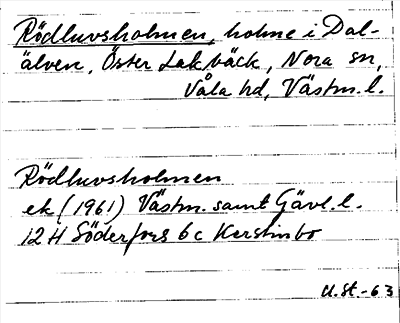 Rödluvsholmen, holme i Dal-
älven, Öster Lakbäck, Nora sn,
Våla hd, Västm. l.
Rödluvsholmen
ek (1961) Västm. samt Gävl. l.
12 H Söderfors 6 c Kerstinbo
U.St.-63